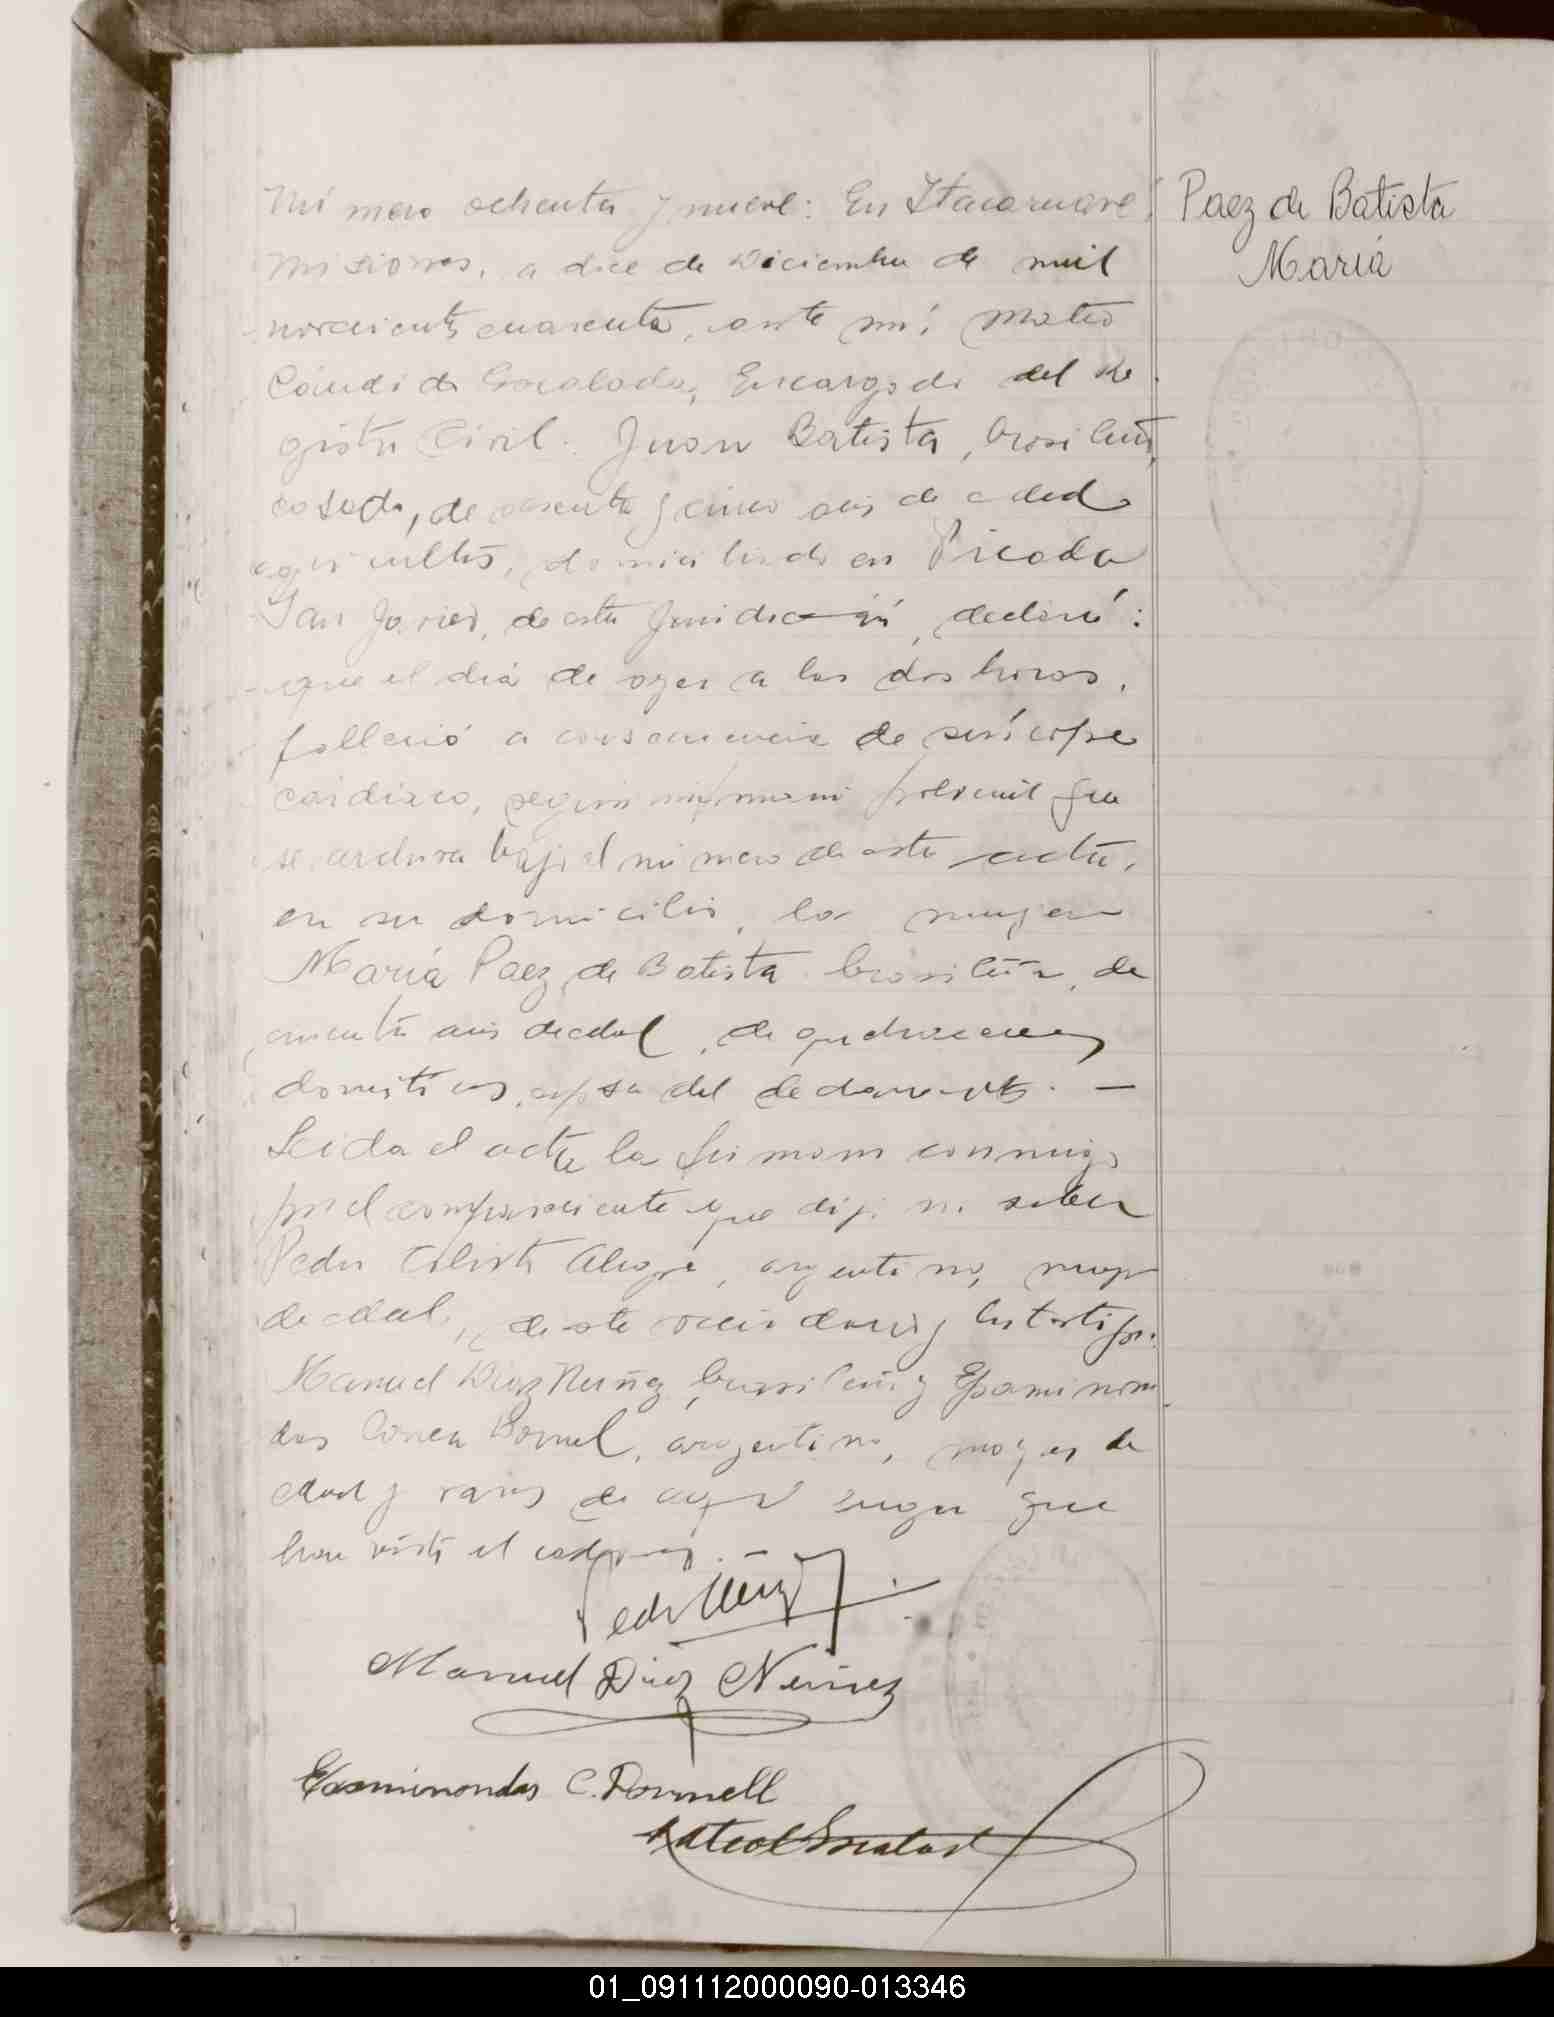 Número ochenta y nueve: En Itacaruaré,
Misiones, a doce de Diciembre de mil
novecientos cuarenta, ante mí, Mateo
Cándido Encargado del Re-
gistro Civil. Juan Batista, brasileño,
casado, de cuarenta y cinco años de edad
agricultor, domiciliado en Picada
San Javier, de esta Jurisdicción, declaró:
que el día de ayer a las dos horas,
falleció a consecuencia de síncope
cardíaco, según informacion policial que
se archiva bajo el número de esta acta,
en su domicilio, la mujer
María Paez de Batista brasileña, de
años de edad, de quehaceres
domésticos, esposa del declarante. —
Leida el acta la firman conmigo
por el compareciente que dijo no saber
Pedro argentino, mayor
de edad, de este vecindario y los testigos:
Manuel Diaz Nuñez, brasileño y Epaminon-
das Correa argentino, mayores de
edad y vecinos de aquí que
han visto el cadaver. —
Pedro
Manuel Diaz Nuñez
Epaminondas C.
Paez de Batista
María
01_091112000090-013346